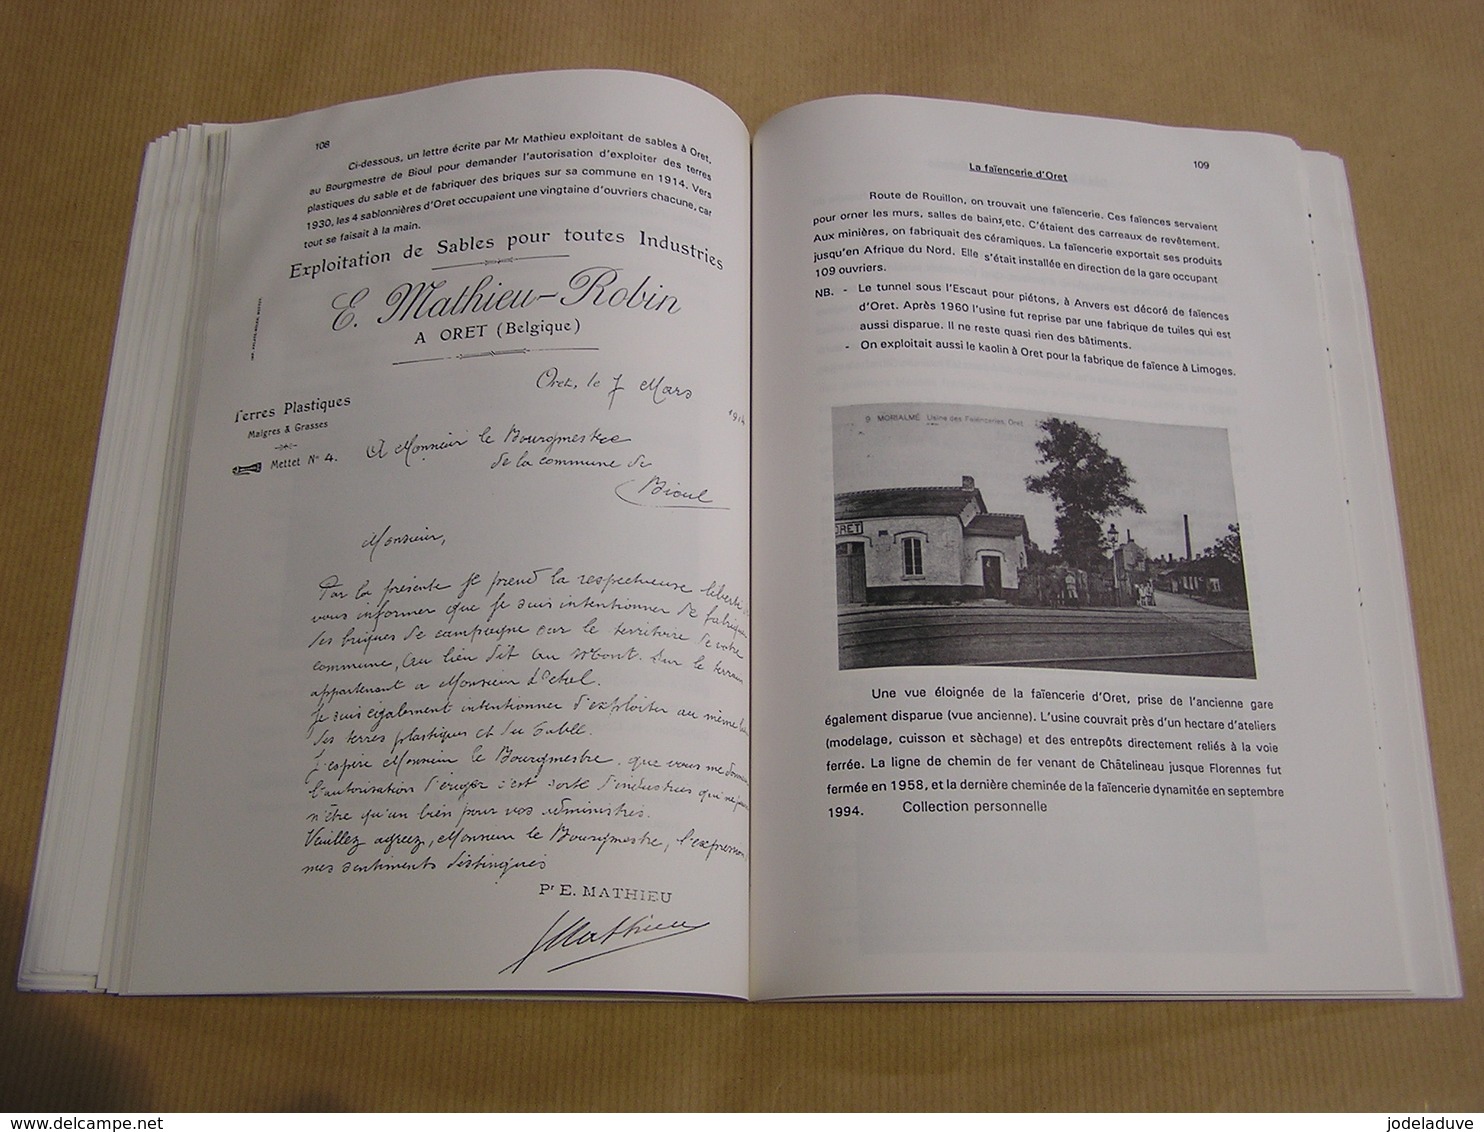 108
Ci-dessous, un lettre écrite par Mr Mathieu exploitant de sables à Oret,
au Bourgmestre de Bioul pour demander l'autorisation d'exploiter des terres
plastiques du sable et de fabriquer des briques sur sa commune en 1914. Vers
1930, les 4 sablonnières d'Oret occupaient une vingtaine d'ouvriers chacune, car
tout se faisait à la main.
Exploitation de Sables pour toutes Industries
E. Mathieu-Robin
A ORET (Belgique)
Oret, le 7 Mars
1914
Terres Plastiques
Maigres & Grasses
Mettet No 4.
A Monsieur le Bourgmestre
de la commune de
Bioul
Monsieur,
Par la présente je prend la respectueuse liberté
vous informer que je suis intentionner de fabriquer
des briques de campagne sur le territoire de votre
commune, au lieu dit au Mont. Sur le terrain
appartenant a Monsieur
Je suis également intentionner d'exploiter au même
des terres plastiques et du sable.
J'espère Monsieur le Bourgmestre, que vous me
l'autorisation d'ériger c'est sorte d'industries qui ne
n'être qu'un bien pour vos administrés.
Veuillez agreez, Monsieur le Bourgmestre, l'expression
mes sentiments distingués
Pr E. MATHIEU
Mathieu
109
La faïencerie d'Oret
Route de Rouillon, on trouvait une faïencerie. Ces faïences servaient
pour orner les murs, salles de bains, etc. C'étaient des carreaux de revêtement.
Aux minières, on fabriquait des céramiques. La faïencerie exportait ses produits
jusqu'en Afrique du Nord. Elle s'était installée en direction de la gare occupant
109 ouvriers.
NB. - Le tunnel sous l'Escaut pour piétons, à Anvers est décoré de faïences
d'Oret. Après 1960 l'usine fut reprise par une fabrique de tuiles qui est
aussi disparue. Il ne reste quasi rien des bâtiments.
- On exploitait aussi le kaolin à Oret pour la fabrique de faïence à Limoges.
9 MORIALMÉ Usine des Faïenceries, Oret
ORET
Une vue éloignée de la faïencerie d'Oret, prise de l'ancienne gare
également disparue (vue ancienne). L'usine couvrait près d'un hectare d'ateliers
(modelage, cuisson et sèchage) et des entrepôts directement reliés à la voie
ferrée. La ligne de chemin de fer venant de Châtelineau jusque Florennes fut
fermée en 1958, et la dernière cheminée de la faïencerie dynamitée en septembre
1994. Collection personnelle
delcampe.net
jodeladuve